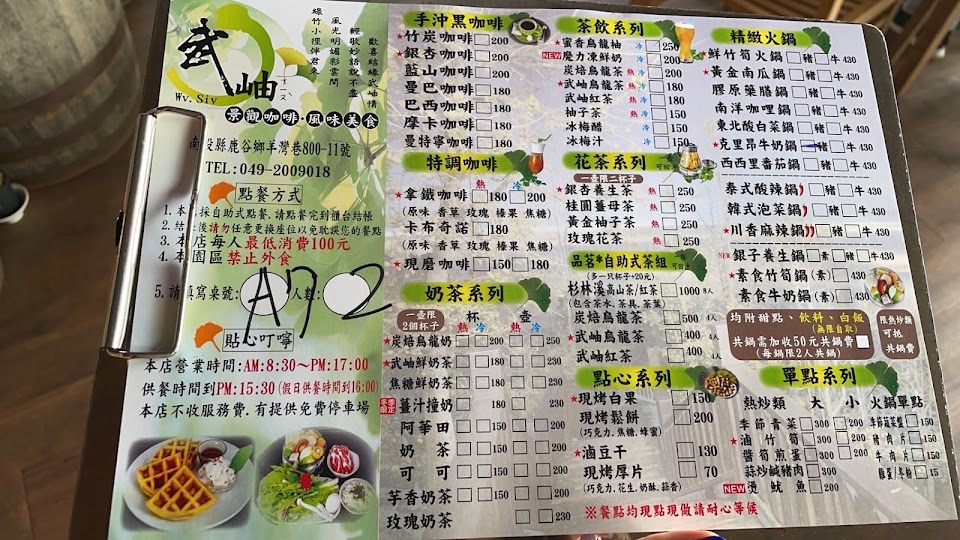 武岫
Wv.Siv
歡喜結緣武岫情
輕歌妙語說不盡
風光明媚彩雲間
綠竹小徑伴君來
景觀咖啡·風味美食
南投縣鹿谷鄉羊灣巷800-11號
TEL:049-2009018
點餐方式
採自助式點餐,請點餐完到櫃台結帳
後請勿任意更換座位以免耽誤您的餐點
3. 本店每人最低消費100元
4. 本園區禁止外食
5. 請填寫桌號: A7 人數: 2
貼心叮嚀
本店營業時間:AM:8:30~PM:17:00
供餐時間到PM:15:30(假日供餐時間到16:00)
本店不收服務費.有提供免費停車場
手沖黑咖啡
★竹炭咖啡 200
★銀杏咖啡 200
藍山咖啡 180
曼巴咖啡 180
巴西咖啡 180
摩卡咖啡 180
曼特寧咖啡 180
特調咖啡
熱 冷
★拿鐵咖啡 180 200
(原味 香草 玫瑰 榛果 焦糖)
卡布奇諾 180
(原味 香草 玫瑰 榛果 焦糖)
★現磨咖啡 150 180
奶茶系列
一壺限2個杯子
杯 壺
熱 冷 熱 冷
★炭焙烏龍奶 150 200
★武岫鮮奶茶 180 230
焦糖鮮奶茶 180 230
冬季限定 薑汁撞奶 180 230
阿華田 150 200
奶茶 150 200
可可 150 200
芋香奶茶 150 200
玫瑰奶茶 230
茶飲系列
★蜜香烏龍柚 冷 250
NEW 魔力凍鮮奶 冷 200
炭焙烏龍茶 熱 冷 150
★武岫烏龍茶 熱 冷 180
武岫紅茶 熱 冷 180
柚子茶 熱 冷 150
冰梅醋 冷 150
冰梅汁 冷 150
花茶系列 可回
一壺限二杯子
★銀杏養生茶 熱 250
桂圓薑母茶 熱 250
黃金柚子茶 熱 250
玫瑰花茶 熱 250
品茗*自助式茶組 可回
(多一只杯子+20元)
杉林溪高山茶/紅茶 1000 8人
(包含茶水、茶具、茶葉)
炭焙烏龍茶 500 4人
武岫烏龍茶 400 4人
武岫紅茶 400 4人
點心系列
★現烤白果 150
現烤鬆餅 200
(巧克力,焦糖,蜂蜜)
★滷豆干 130
現烤厚片 70
(巧克力、花生、奶酥、蒜香)
※餐點均現點現做請耐心等候
精緻火鍋
鮮竹筍火鍋 豬 牛 430
★黃金南瓜鍋 豬 牛 430
膠原藥膳鍋 豬 牛 430
南洋咖哩鍋 豬 牛 430
東北酸白菜鍋 豬 牛 430
★克里昂牛奶鍋 豬 牛 430
西西里番茄鍋 豬 牛 430
泰式酸辣鍋 豬 牛 430
韓式泡菜鍋 豬 牛 430
★川香麻辣鍋 豬 牛 430
NEW 銀子養生鍋 豬 牛 430
★素食竹筍鍋(素) 430
素食牛奶鍋(素) 430
均附甜點、飲料、白飯
(無限自取)
共鍋需加收50元共鍋費
(每鍋限2人共鍋)
限熱炒類可抵共鍋費
單點系列
熱炒類 大 小
季節青菜 200 150
★滷竹筍 300 200
醬筍煎蛋 300 200
蒜炒鹹豬肉 300
NEW 燙魷魚 200
火鍋單點
季節蔬菜盤 150
豬肉片 150
牛肉片 150
雞蛋/冬粉 15